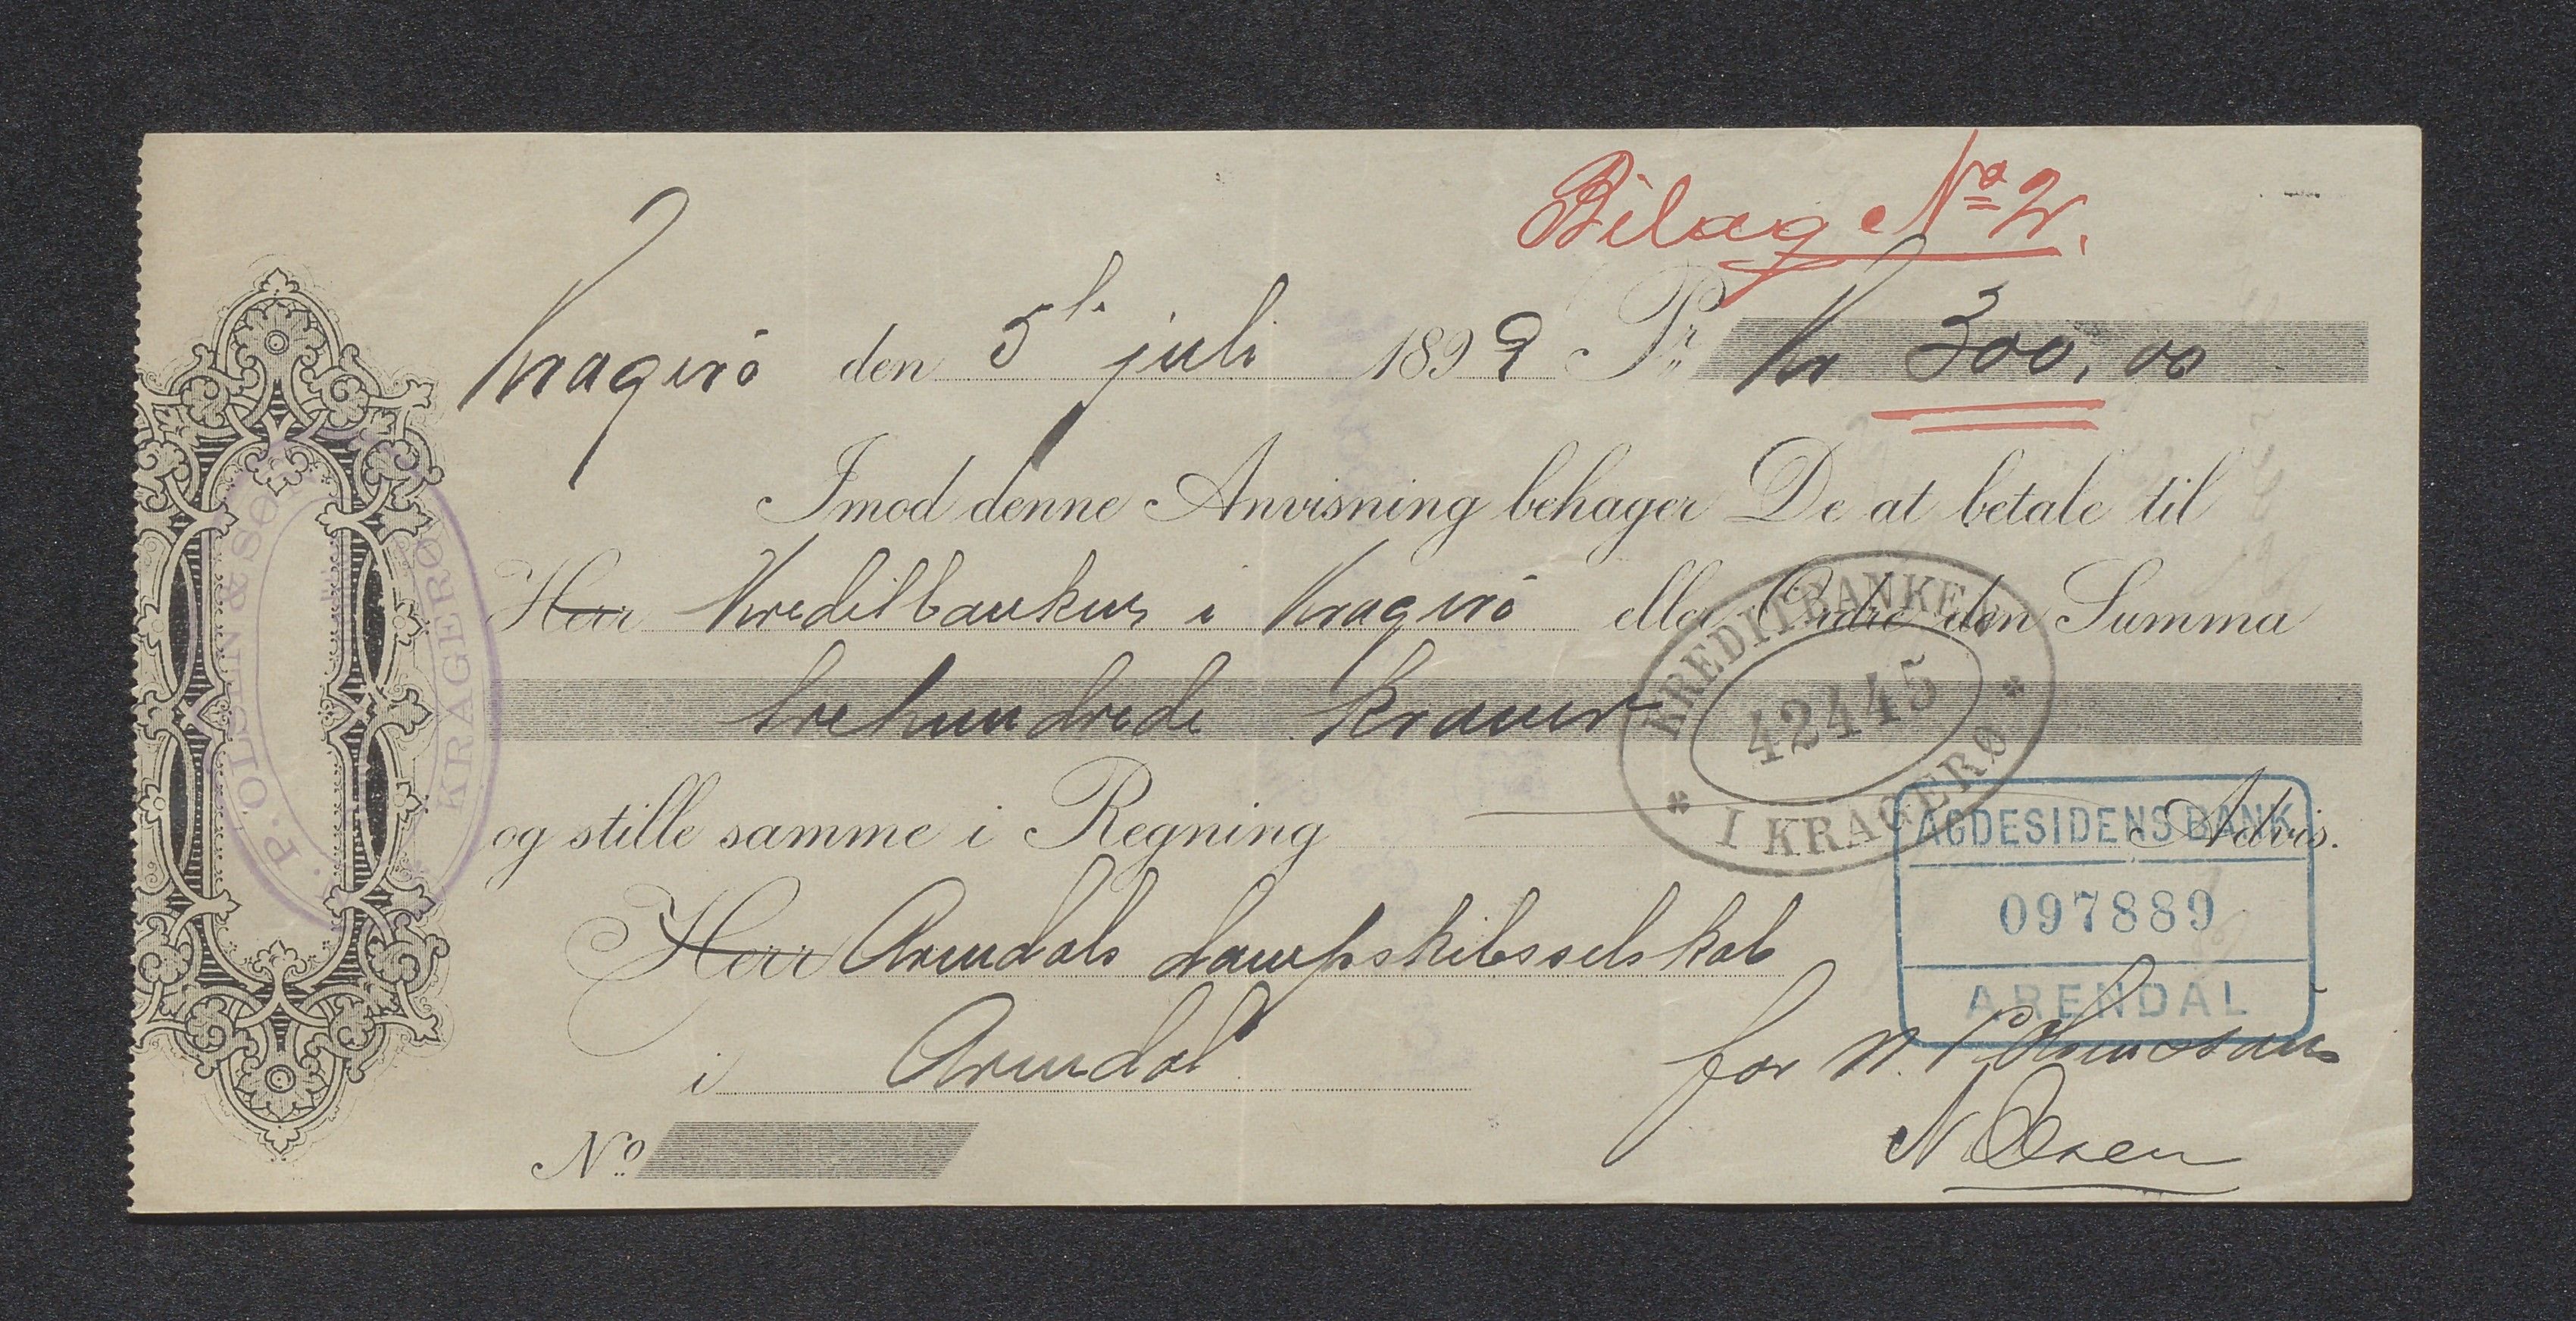 Bilag No 2.
Kragerö den 5te juli 1899 Pr. Kr 300,00
Imod denne Anvisning behager De at betale til
Herr Kreditbanken i Kragerö eller Ordre den Summa
trehundrede kroner
og stille samme i Regning Advis.
Herr Arendals dampskibsselskab
i Arendal
for N. P.
N Olsen
No
P. OLSEN & SØN
KRAGERØ
KREDITBANKEN
42445
I KRAGERØ
AGDESIDENS BANK
097889
ARENDAL